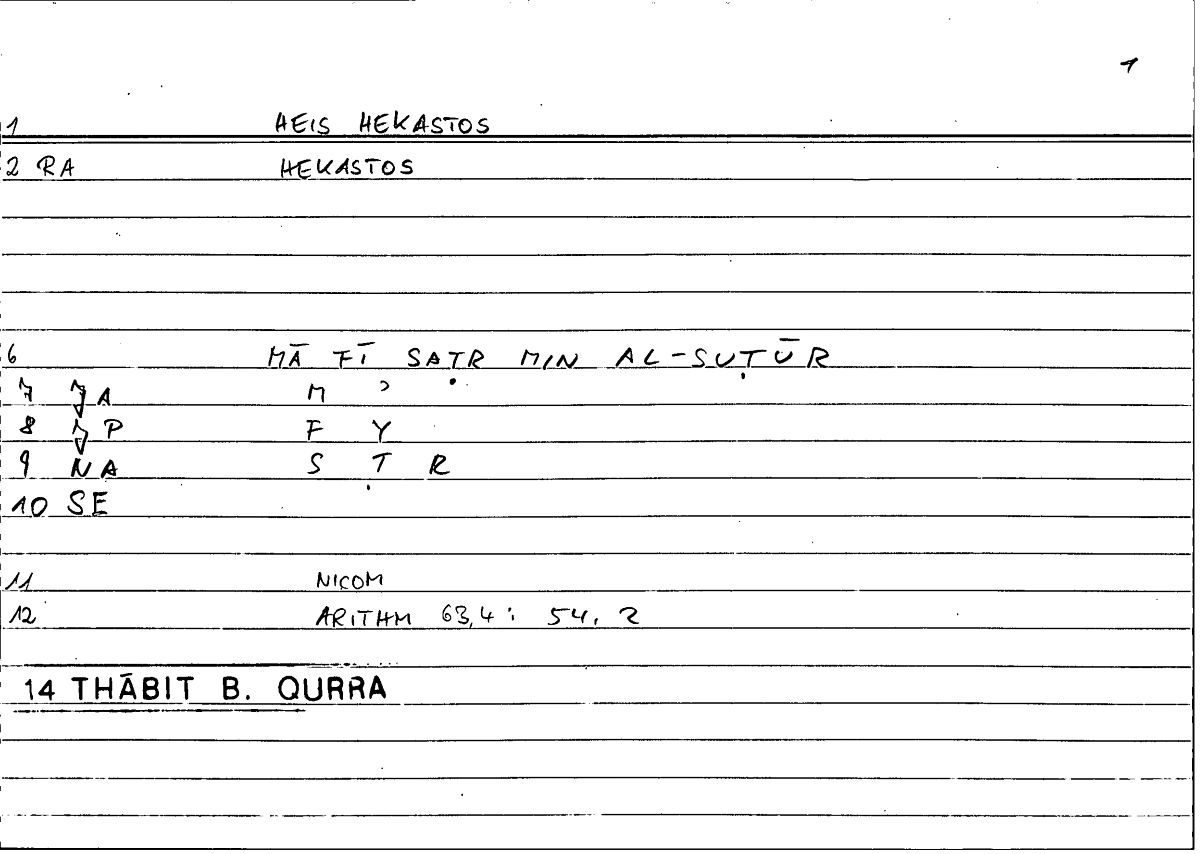 1
1 HEIS HEKASTOS
2 RA HEKASTOS
6 MĀ FĪ SAṬR MIN AL-SUṬŪR
7 JA M ʾ
8 JP F Y
9 NA S Ṭ R
10 SE
11 NICOM
12 ARITHM 63,4 : 54, 2
14 THĀBIT B. QURRA